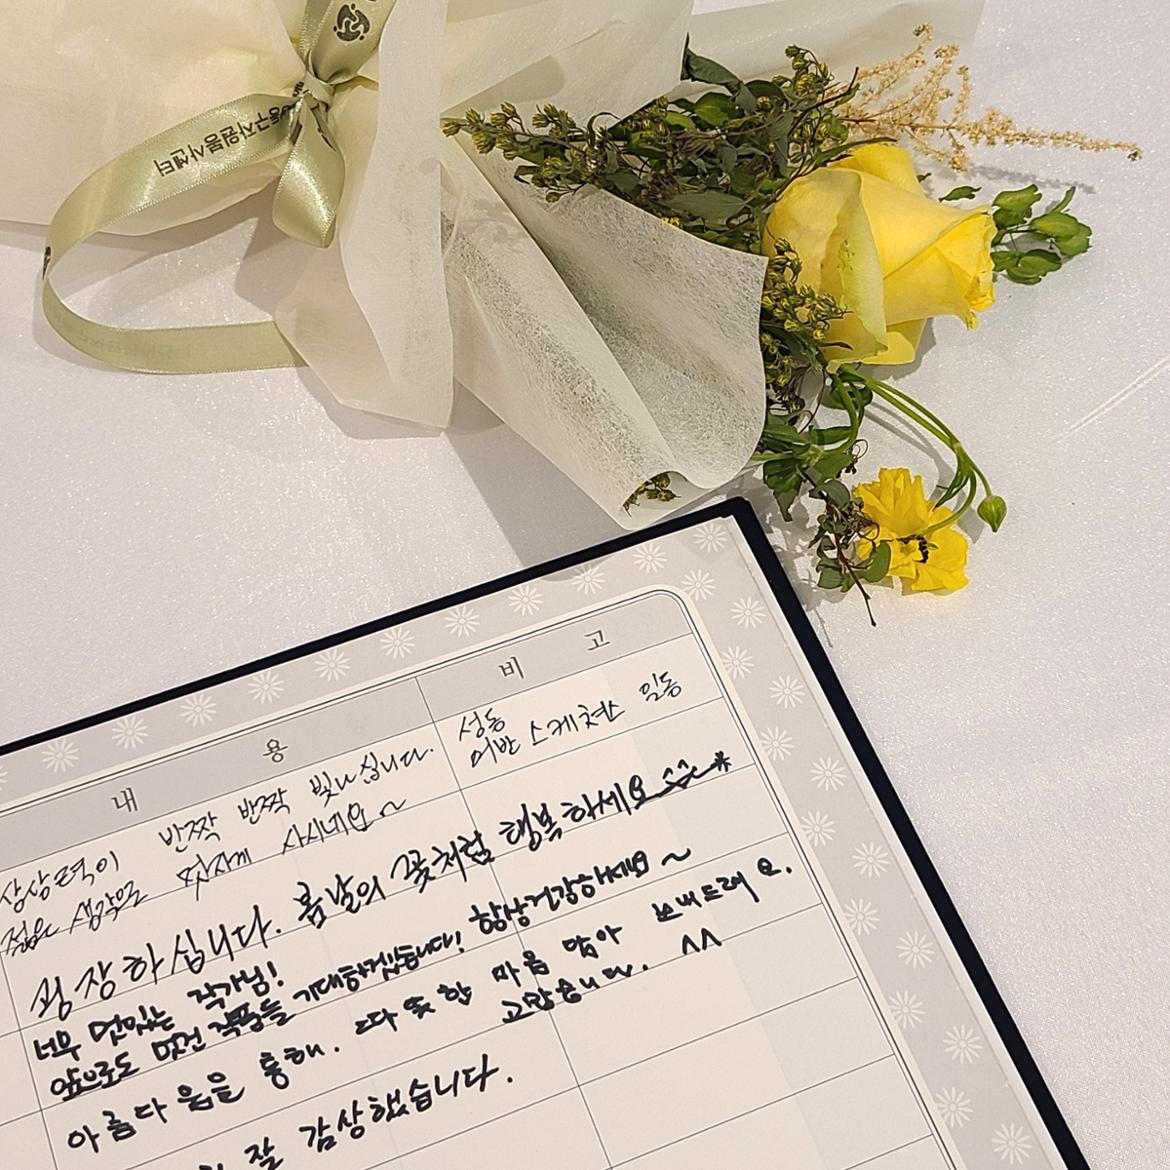 성동구자원봉사센터
내 용
비 고
상상력이 반짝 반짝 빛나십니다.
젊은 생각으로 멋지게 사시네요~
성동
어반 스케쳐스 일동
굉장하십니다. 봄날의 꽃처럼 행복하세요 ^^*
너무 멋있는 작가님!
앞으로도 멋진 작품들 기대하겠습니다! 항상건강하세요~
아름다움을 통해. 따뜻한 마음 담아 보내드려요.
고맙습니다. ^^
잘 감상했습니다.